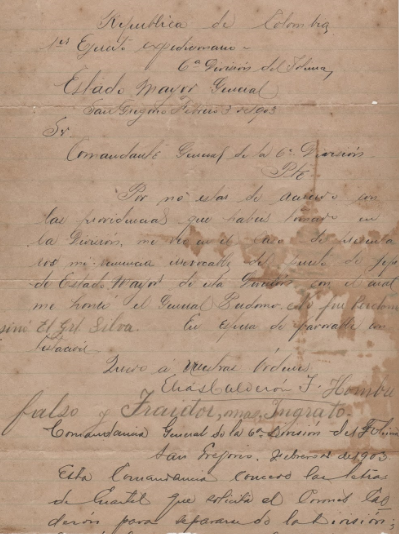 Republica de Colombia
1er Ejercito expedicionario
6a Division del Tolima
Estado Mayor General
San Gregorio Febrero 3 de 1903
Sr
Comandante General de la 6a Division
Pte
Por no estar de acuerdo con
las providencias que habeis tomado en
la Division, me veo en el caso de presenta
ros mi renuncia irrevocable del puesto de Jefe
de Estado Mayor de esta Division con el cual
me honró el General Perdomo
El Grl Silva. En espera de favorable con
testacion
Quedo á vuestras órdenes
Elias Calderon T. Hombre
falso y Traidor, mas Ingrato.
Comandancia General de la 6a Division del Tolima
San Gregorio, Febrero de 1903
Esta Comandancia concede las letras
de Cuartel que solicita el Coronel Cal
deron para separarse de la Division;